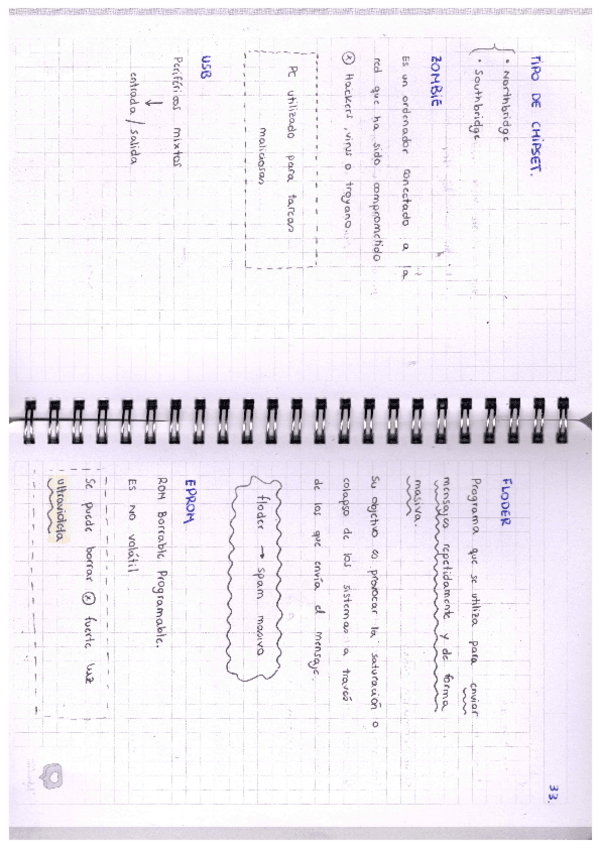 TIPO DE CHIPSET.
• Northbridge
• Southbridge
ZOMBIE
Es un ordenador conectado a la
red que ha sido comprometido
ⓧ Hackers, virus o troyano...
PC utilizado para tareas
maliciosas
USB
Periféricos mixtos
↓
entrada / salida
33.
FLODER
Programa que se utiliza para enviar
mensajes repetidamente y de forma
masiva.
Su objetivo es provocar la saturación o
colapso de los sistemas a través
de los que envía el mensaje.
floder → spam masivo
EPROM
ROM Borrable Programable.
Es no volátil.
Se puede borrar ⓧ fuerte luz
ultravioleta